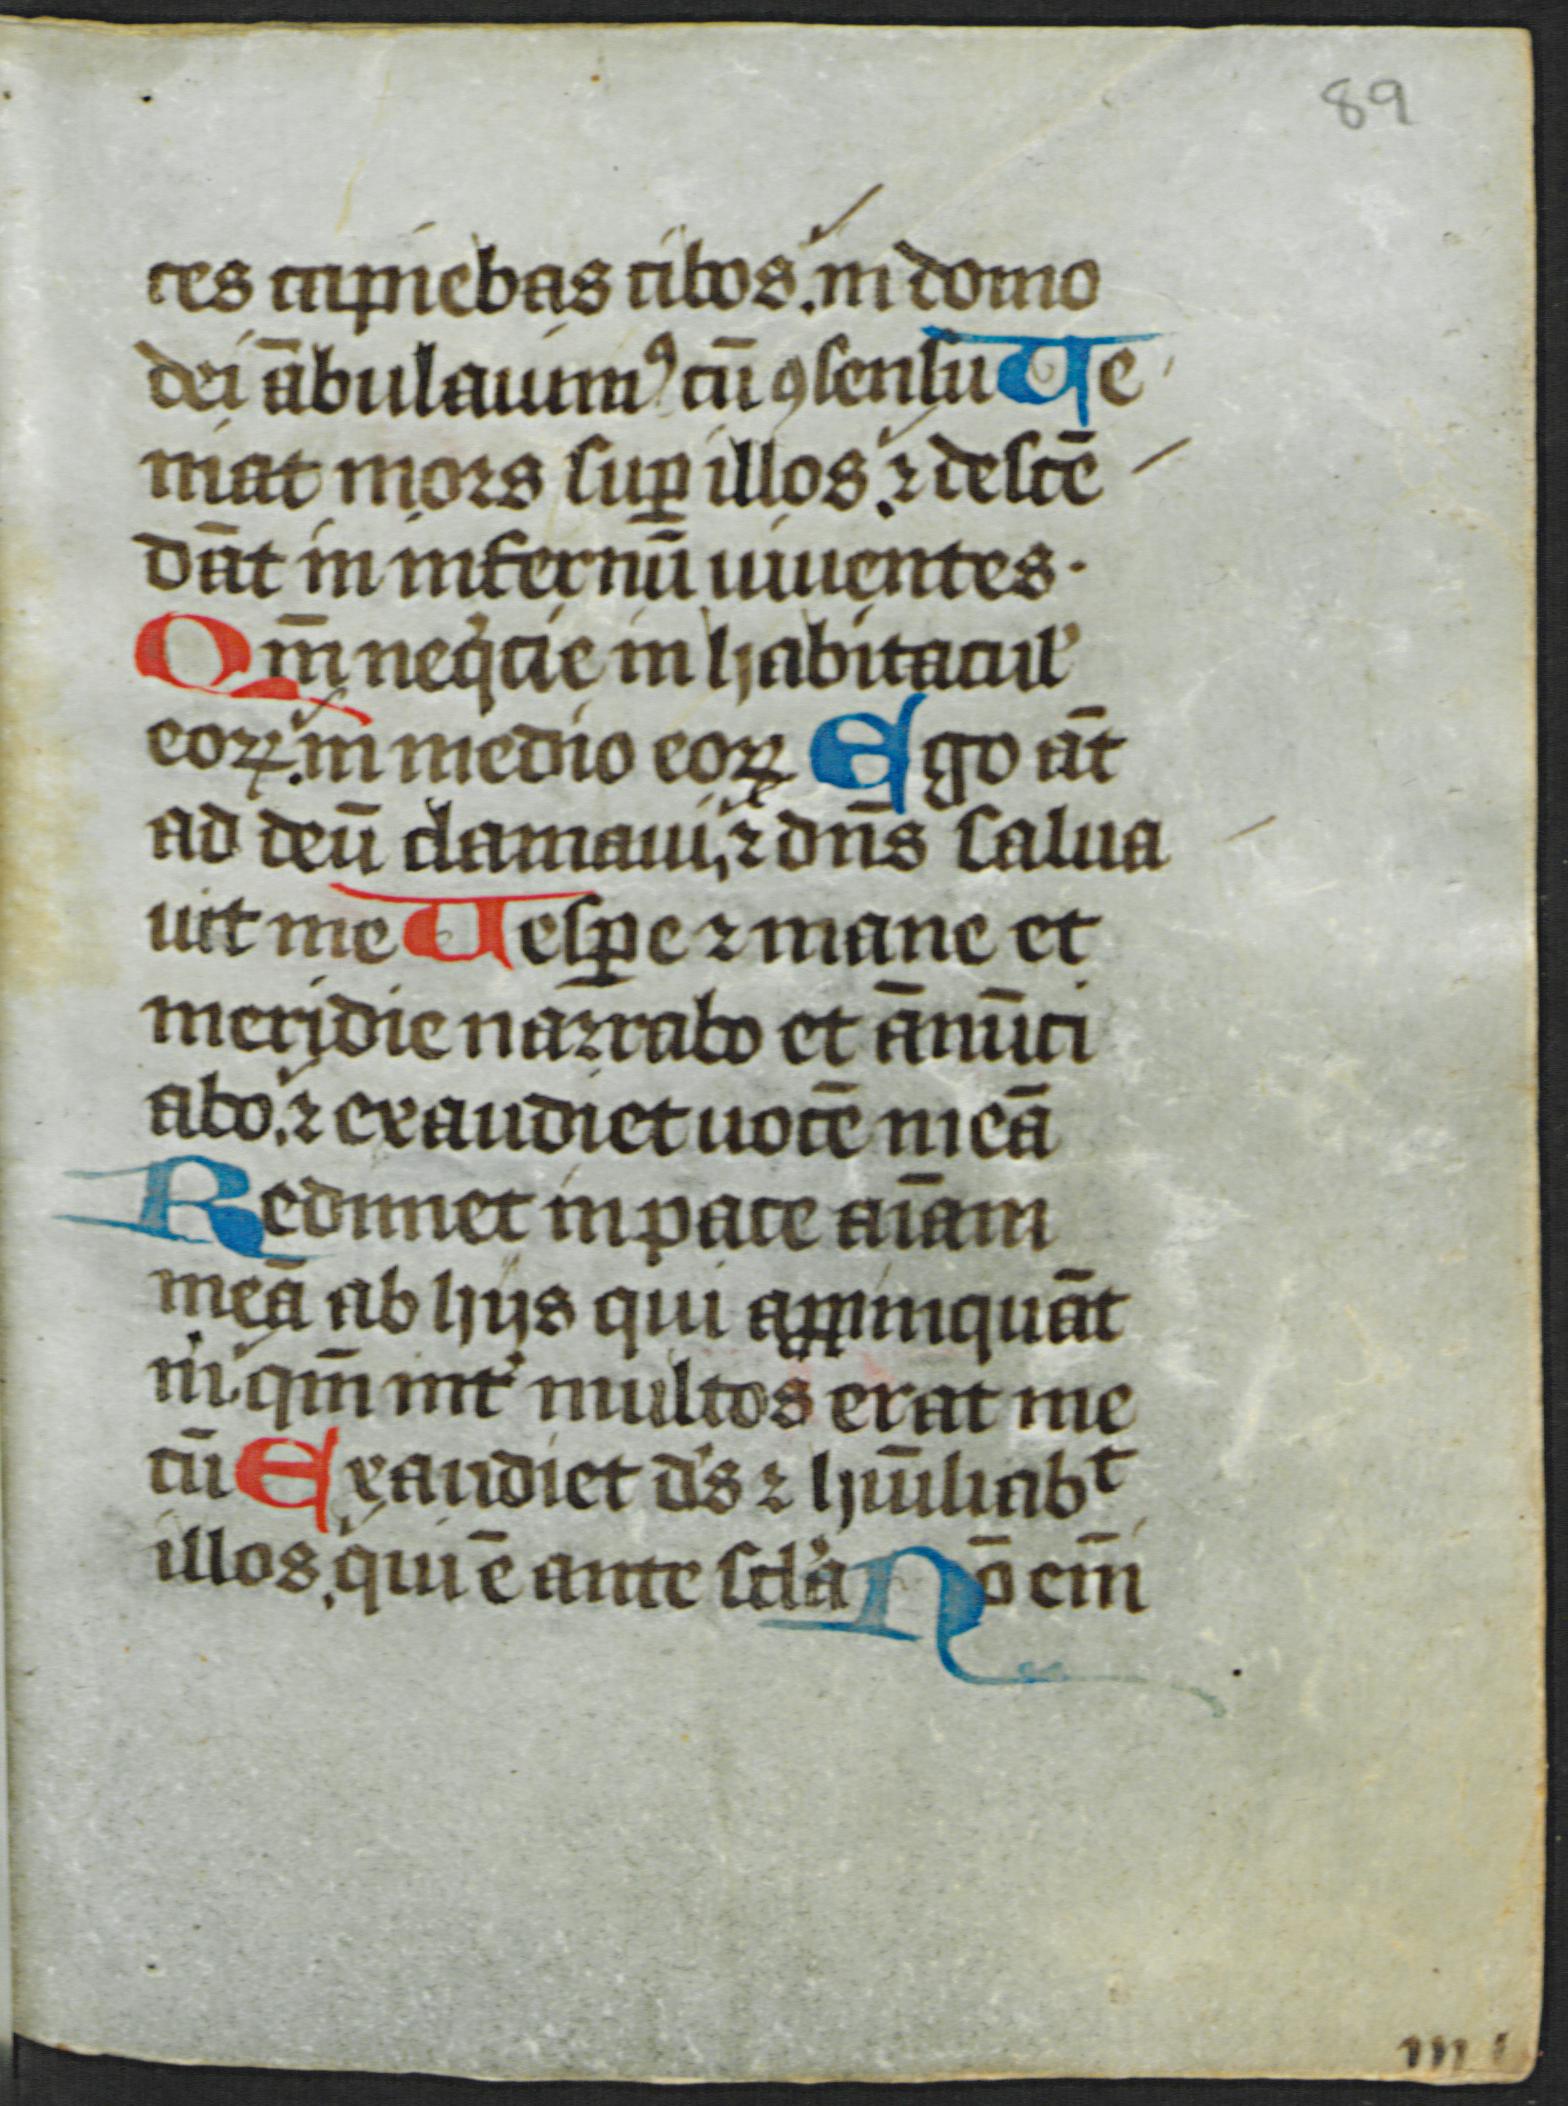 89
ces capiebas cibos. in domo
dei ābulauimꝰ cū ꝯsensu Ue
niat mors suꝑ illos. ⁊ descē
dāt in infernū uiuentes.
Qm̄ neq̇cie in habitacul'
eoꝝ. in medio eoꝝ Ego āt
ad deū clamaui. ⁊ dn̄s salua
uit me Uesꝑe ⁊ mane et
meridie narrabo et ānūti
abo. ⁊ exaudiet uocē meā
Redimet in pace aīam
meā ab hijs qui aꝓpinquāt
m̄i. qm̄ int' multos erat me
cū Exaudiet d's ⁊ hūiliabᵗ
illos. qui ē ante scl'a Nō em̄
m